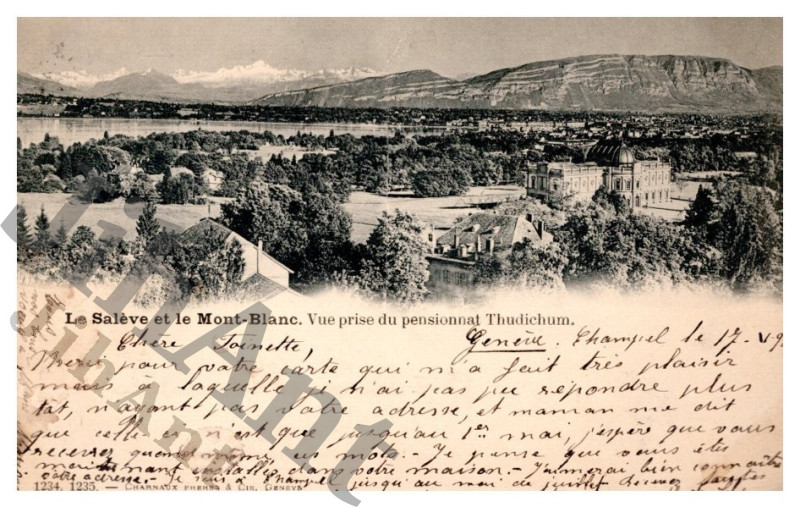 Le Salève et le Mont-Blanc. Vue prise du pensionnat Thudichum.
Chère Toinette, Genève. Champel le 17. V. 9
Merci pour votre carte qui m'a fait très plaisir
mais à laquelle je n'ai pas pu répondre plus
tôt, n'ayant pas votre adresse, et maman me dit
que celle ci n'est que jusqu'au 1er mai, j'espère que vous
recevrez quand même ces mots. - Je pense que vous êtes
maintenant installés dans votre maison. - J'aimerai bien connaître
votre adresse. - Je suis à Champel jusqu'au mai de juillet
1234. 1235. — CHARNAUX FRÈRES & CIE, GENÈVE